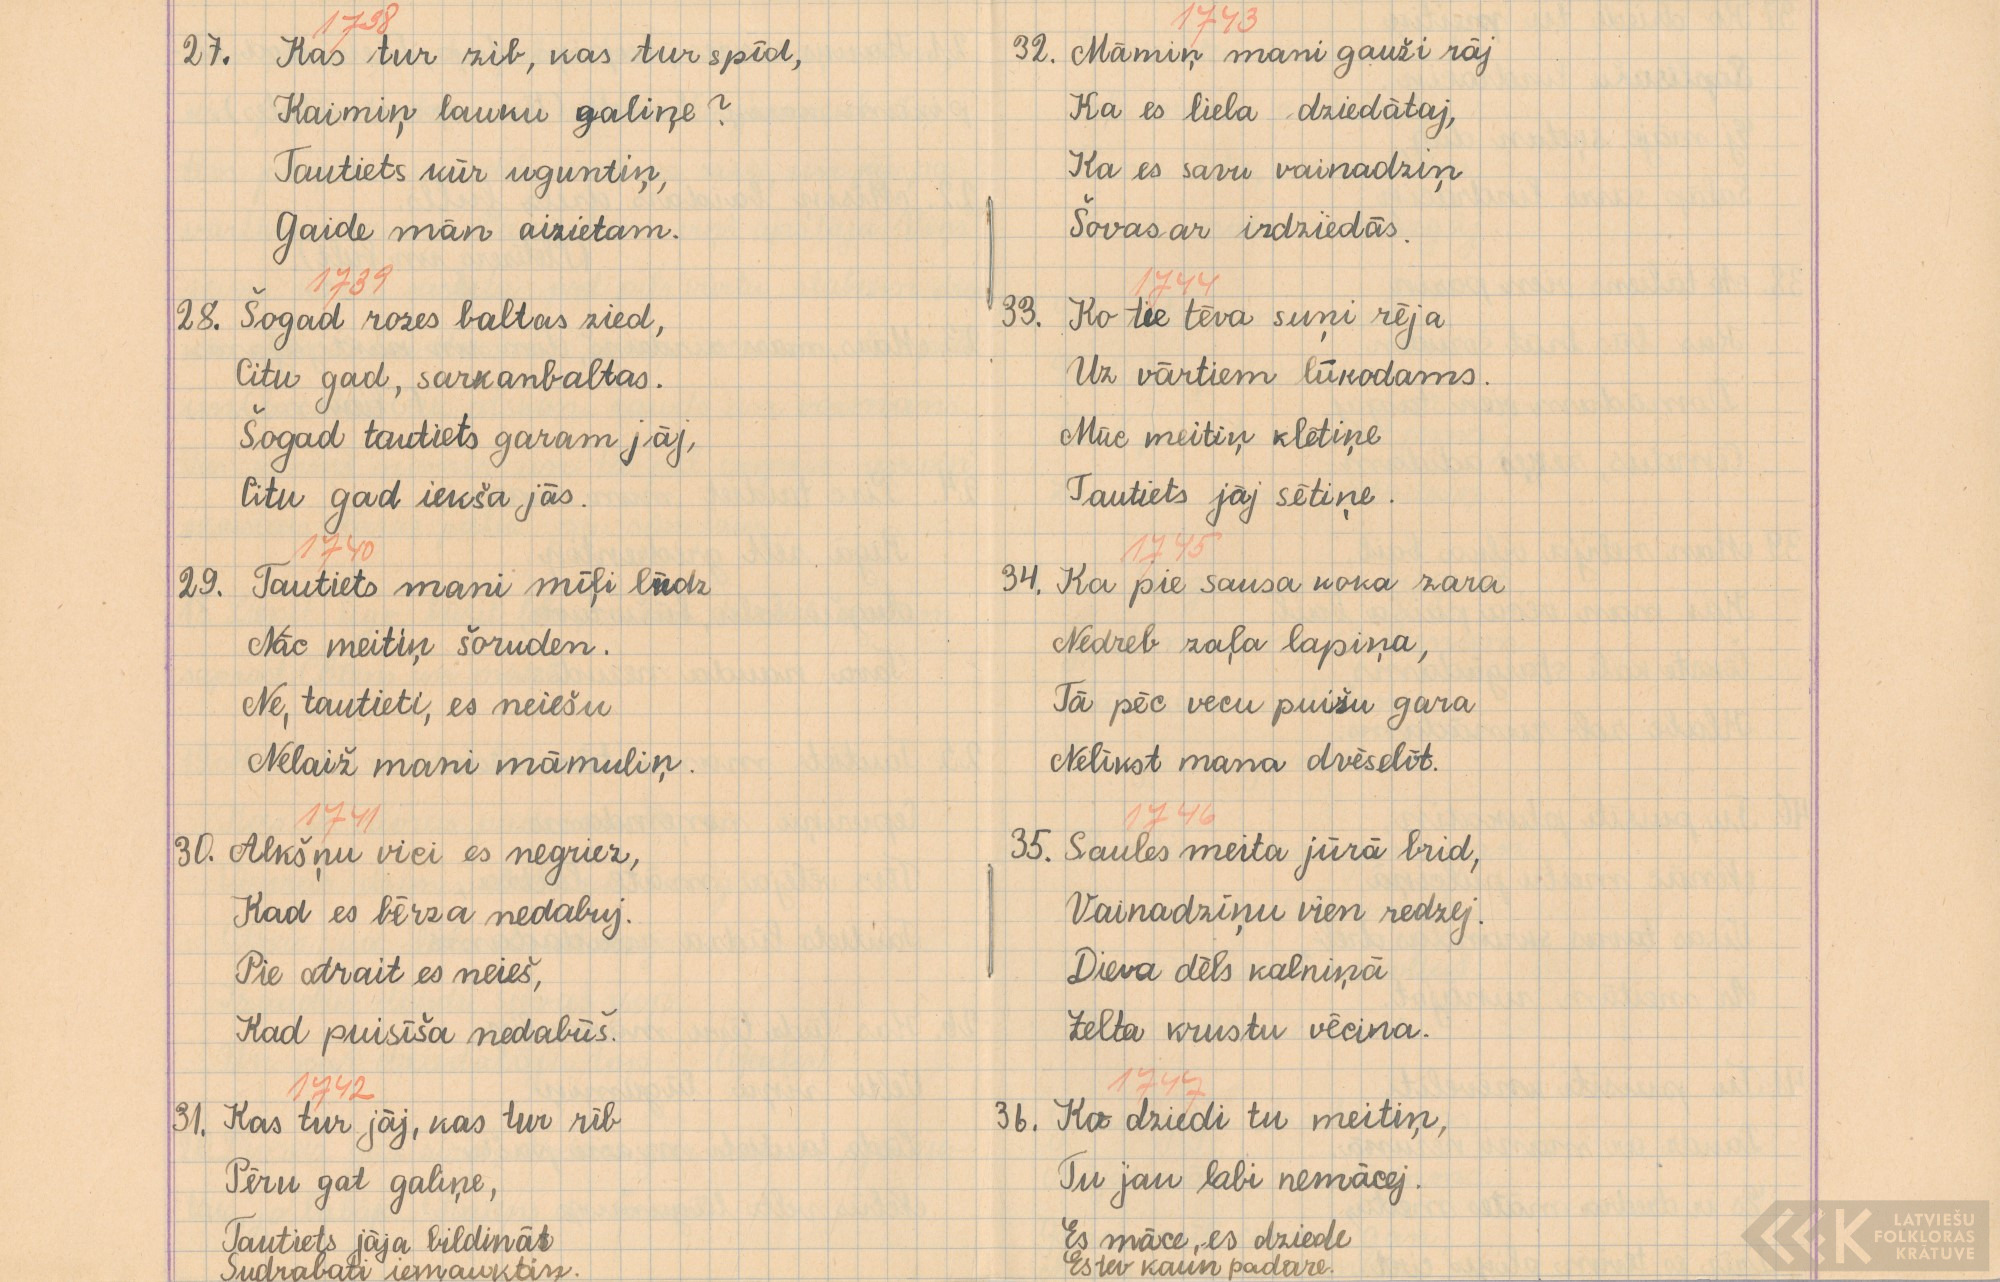 1738
27. Kas tur zib, kas tur spīd,
Kaimiņ lauku galiņe?
Tautiets kūr uguntiņ,
Gaide mān aizietam.
1739
28. Šogad rozes baltas zied,
Citu gad, sarkanbaltas.
Šogad tautiets garam jāj,
Citu gad iekša jās.
1740
29. Tautiets mani mīļi lūdz
Nāc meitiņ šoruden.
Ne, tautieti, es neiešu
Nelaiž mani māmuliņ.
1741
30. Alkšņu vici es negriez,
Kad es bērza nedabuj.
Pie atrait es neieš,
Kad puisīša nedabūš.
1742
31. Kas tur jāj, kas tur rīb
Pēru gat galiņe,
Tautiets jāja bildināt
Sudrabati iemauktiņ.
1743
32. Māmiņ mani gauži rāj
Ka es liela dziedātaj,
Ka es savu vainadziņ
Šovasar izdziedās.
1744
33. Ko tie tēva suņi rēja
Uz vārtiem lūkodams.
Mūc meitiņ klētiņe
Tautiets jāj sētiņe.
1745
34. Ka pie sausa koka zara
Nedreb zaļa lapiņa,
Tā pēc vecu puišu gara
Nelīkst mana dvēselīt.
1746
35. Saules meita jūrā brid,
Vainadziņu vien redzej.
Dieva dēls kalniņā
Zelta krustu vēcina.
1747
36. Ko dziedi tu meitiņ,
Tu jau labi nemācej.
Es māce, es dziede
Es tev kaun padare.
LATVIEŠU
FOLKLORAS
KRĀTUVE